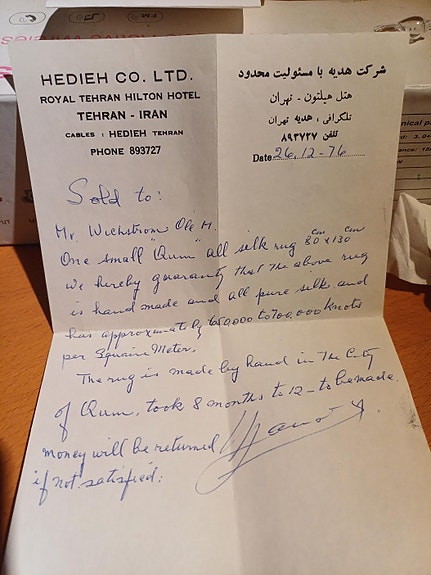 HEDIEH CO. LTD.
ROYAL TEHRAN HILTON HOTEL
TEHRAN - IRAN
CABLES : HEDIEH TEHRAN
PHONE 893727
شرکت هدیه با مسئولیت محدود
هتل هیلتون - تهران
تلگرافی : هدیه تهران
تلفن ۸۹۳۷۲۷
Date 26.12-76
Sold to:
Mr. Wickstrom Ole H.
One small "Qum" all silk rug 80 cm x 130 cm
We hereby guaranty that the above rug
is hand made and all pure silk and
has approximately 650,000 to 700,000 Knots
per Squaire Meter.
The rug is made by hand in The City
of Qum, took 8 months to 12 - to be made.
money will be returned
if not satisfied.